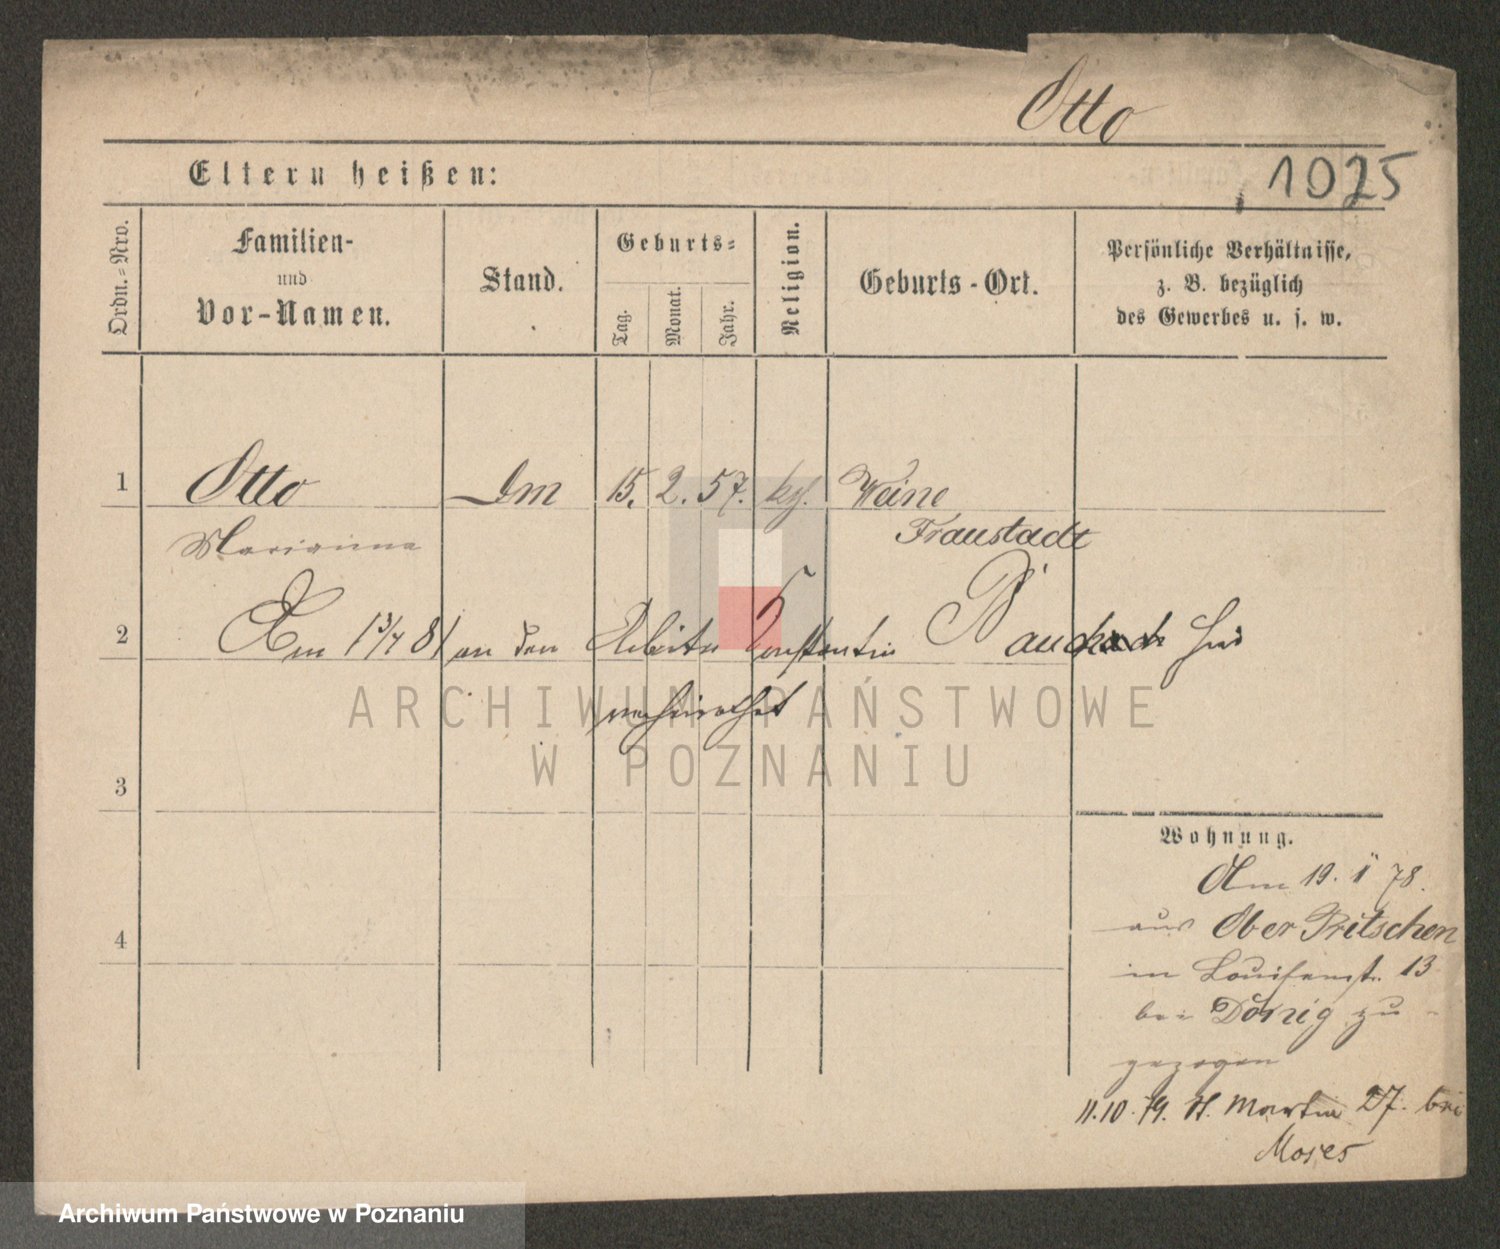 Otto
Eltern heißen:
1025
Ordn.=Nro.
Familien-
und
Vor-Namen.
Stand.
Geburts=
Tag.
Monat.
Jahr.
Religion.
Geburts-Ort.
Persönliche Verhältnisse,
z. B. bezüglich
des Gewerbes u. s. w.
1 Otto Dm 15. 2. 57. Weine
Marianna Fraustadt
2 Am 13/4 81 an den Arbeiter Constantin hier
verheirathet
ARCHIWUM PAŃSTWOWE
W POZNANIU
3
4
Wohnung.
Am 19. 1 78.
aus Ober Pritschen
in Louisenstr. 13
bei Dönig zu-
gezogen
11.10.79. St. Martin 27. bei
Moses
Archiwum Państwowe w Poznaniu